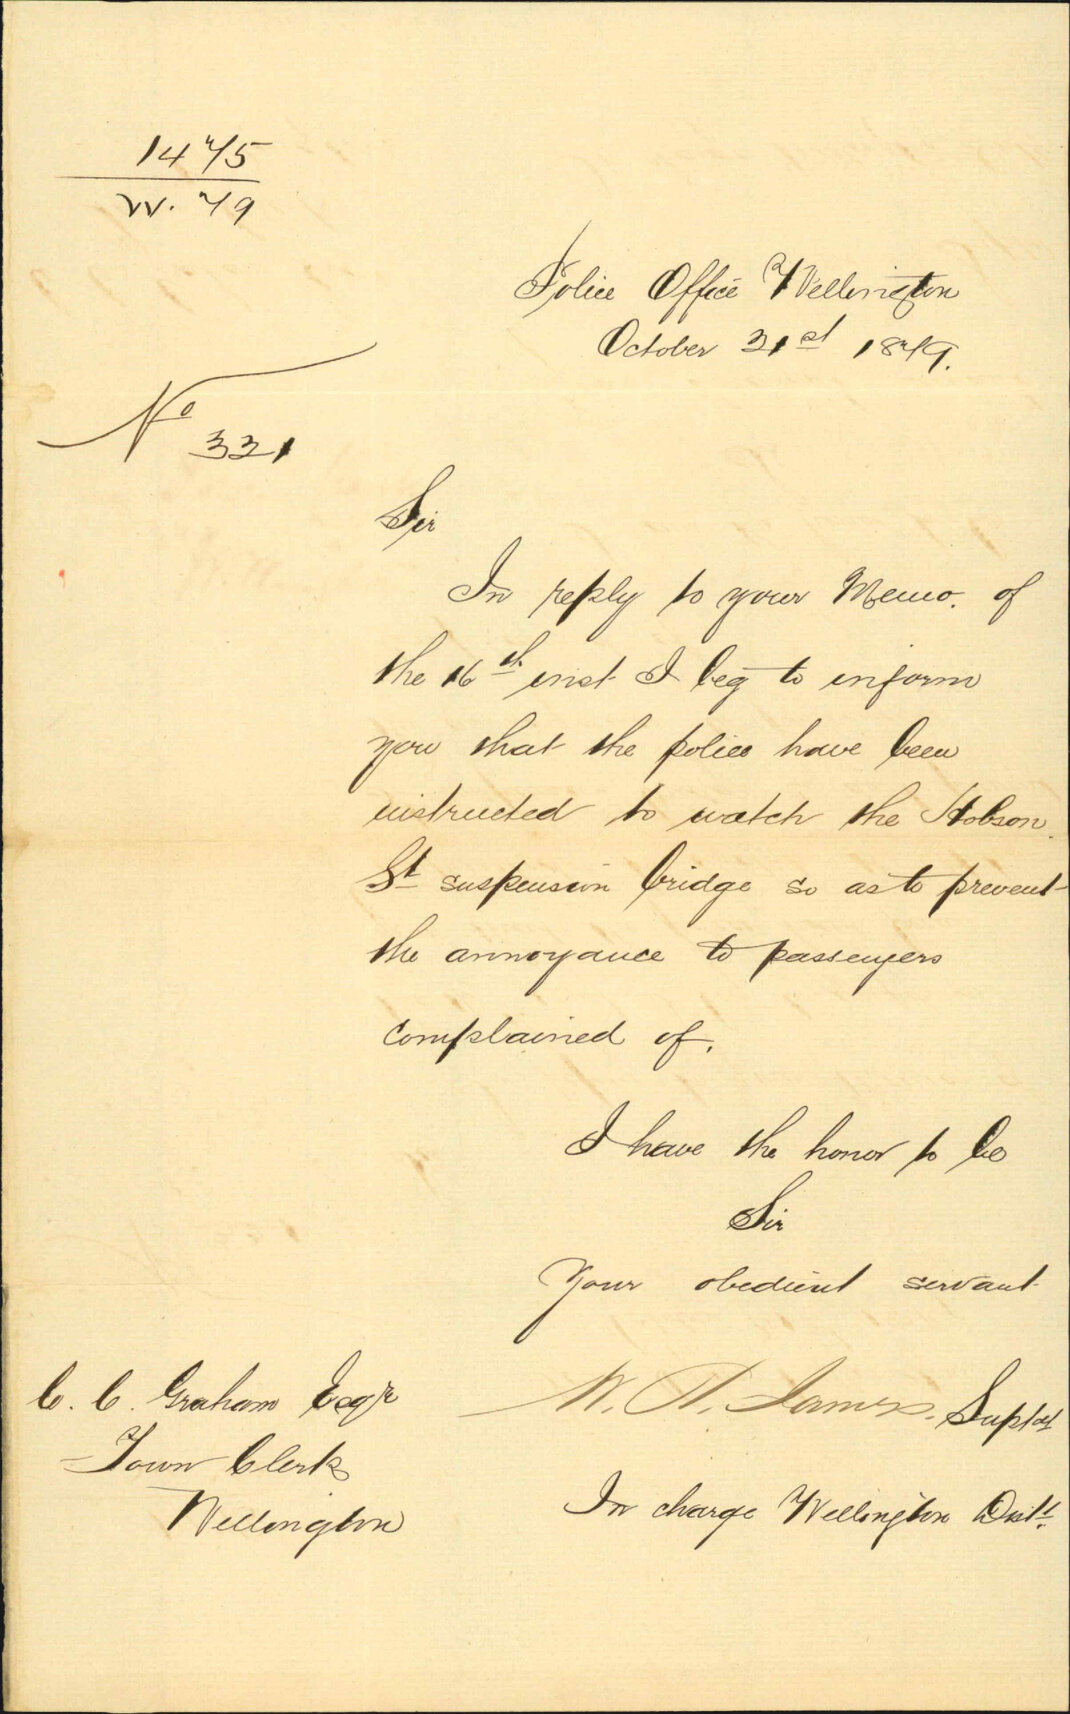 1475
W. 79
Police Office Wellington
October 31st 1879.
No 331
Sir
In reply to your Memo. of
the 16th inst I beg to inform
you that the police have been
instructed to watch the Hobson
St suspension bridge so as to prevent
the annoyance to passengers
complained of.
I have the honor to be
Sir
Your obedient servant
W. S. James. Suptdt
C. C. Graham Esqr
Town Clerk
Wellington
In charge Wellington Distt.